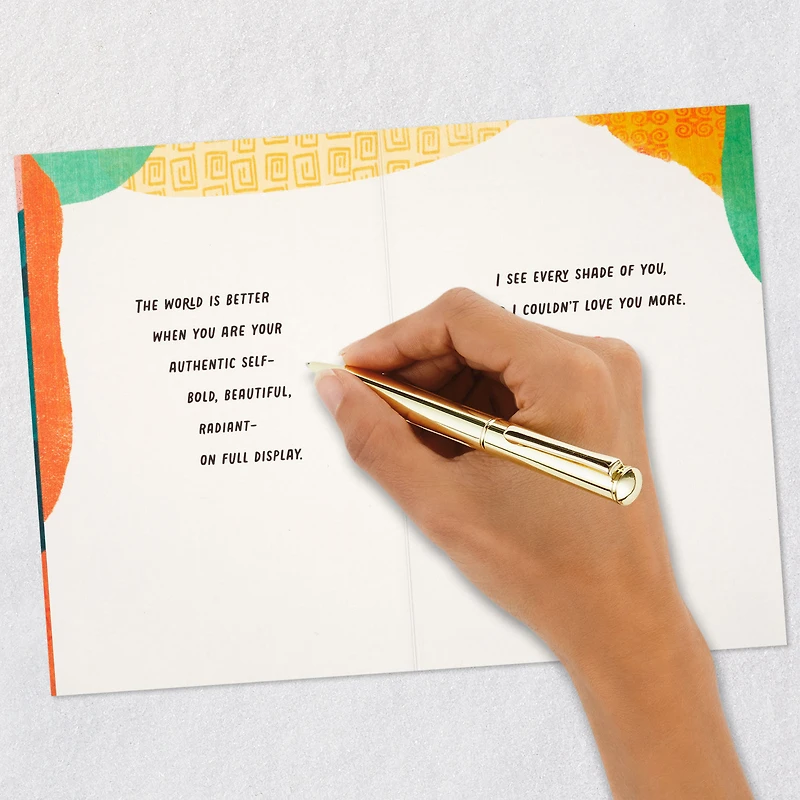 THE WORLD IS BETTER
WHEN YOU ARE YOUR
AUTHENTIC SELF–
BOLD, BEAUTIFUL,
RADIANT–
ON FULL DISPLAY.
I SEE EVERY SHADE OF YOU,
I COULDN'T LOVE YOU MORE.